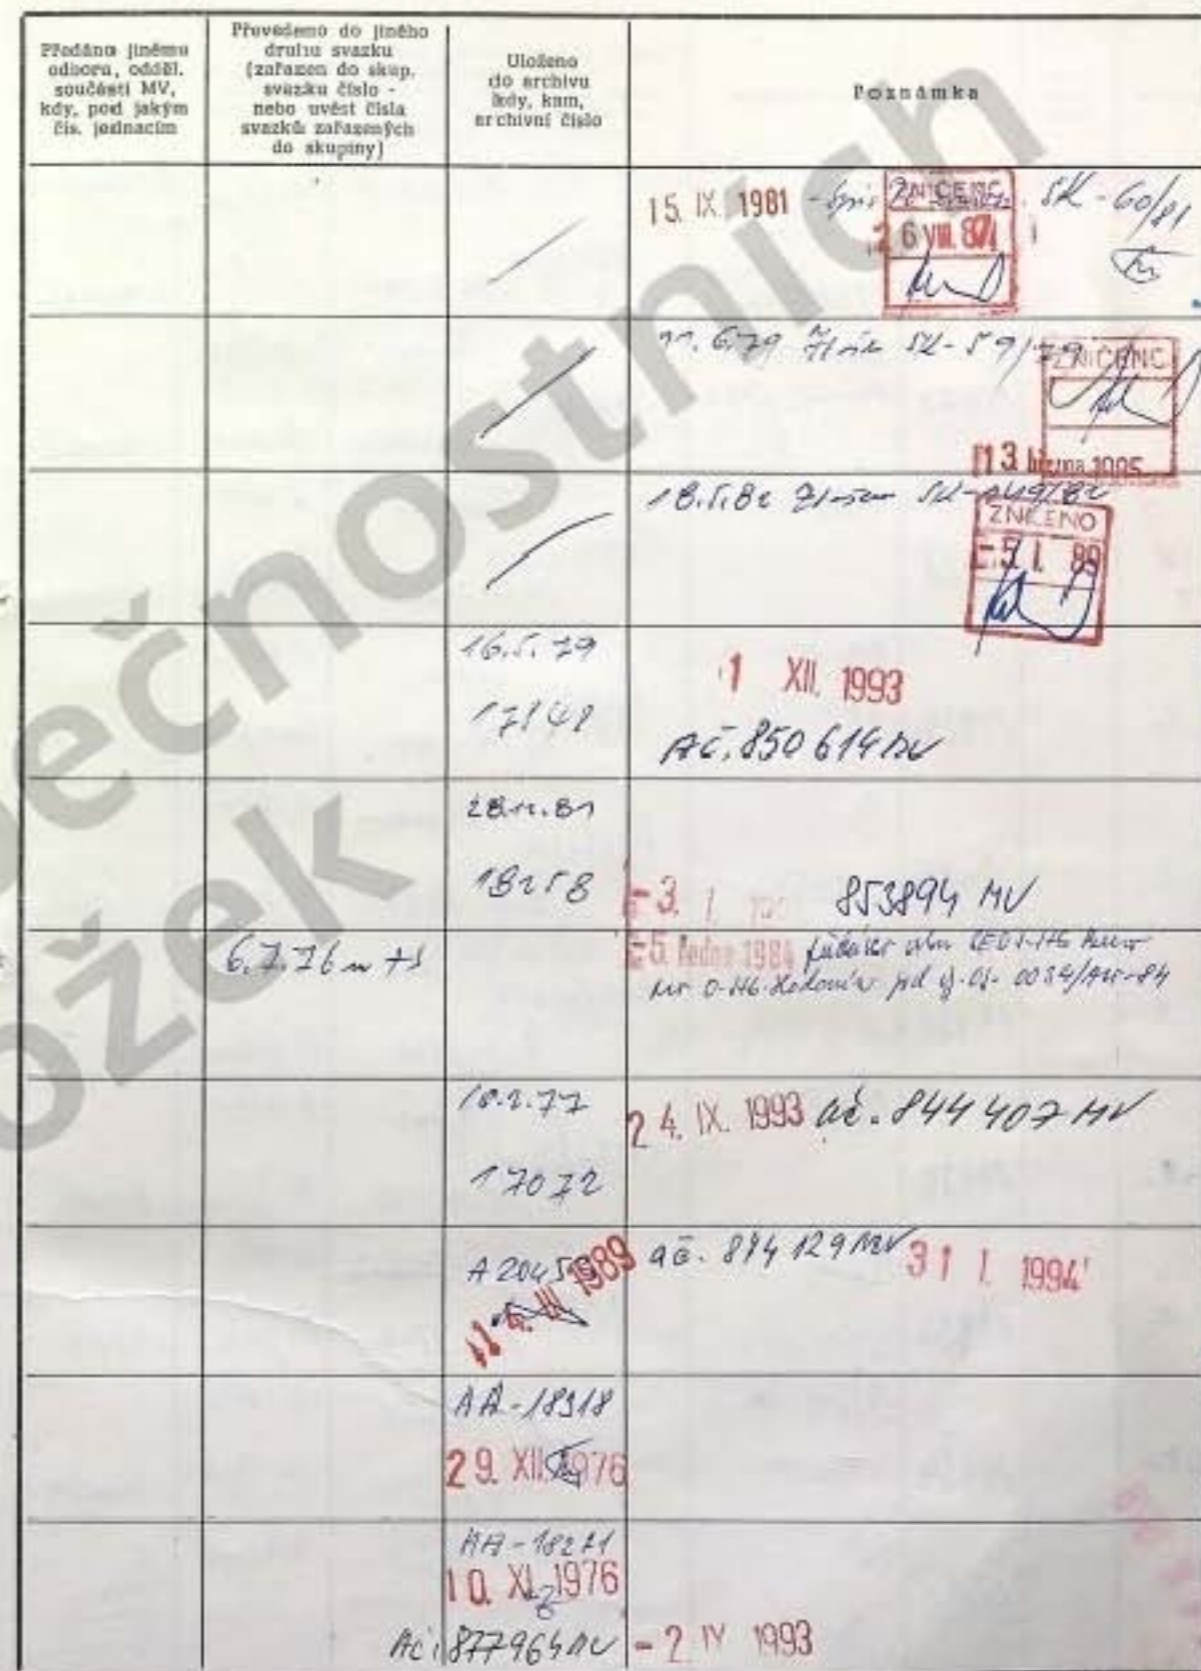 Předáno jinému
odboru, odděl.
součásti MV,
kdy, pod jakým
čís. jednacím
Převedeno do jiného
druhu svazku
(zařazen do skup.
svazku číslo -
nebo uvést čísla
svazků zařazených
do skupiny)
Uloženo
do archivu
kdy, kam,
archivní číslo
Poznámka
15. IX. 1981 - Spis ZNIČENO SK - 60/81
26 VIII. 87
11. 6. 79 SK - 59/79
ZNIČENO
13. března 1985
18. 5. 82 SK - 149/82
ZNIČENO
- 5. I. 89
16. 5. 79
17848
1 XII. 1993
AČ. 850 614 MV
28. 12. 81
18258
- 3. I.
853894 MV
6. 7. 76
- 5. ledna 1984
0034/ -84
18. 2. 77
17072
24. IX. 1993 ač. 844 407 MV
A 2045
1989
ač. 894 129 MV 31 I. 1994
AA - 18318
29. XII. 1976
AA - 18271
10. XI. 1976
Ač. 877964 MV - 2 IV 1993
ečnostních
ožek